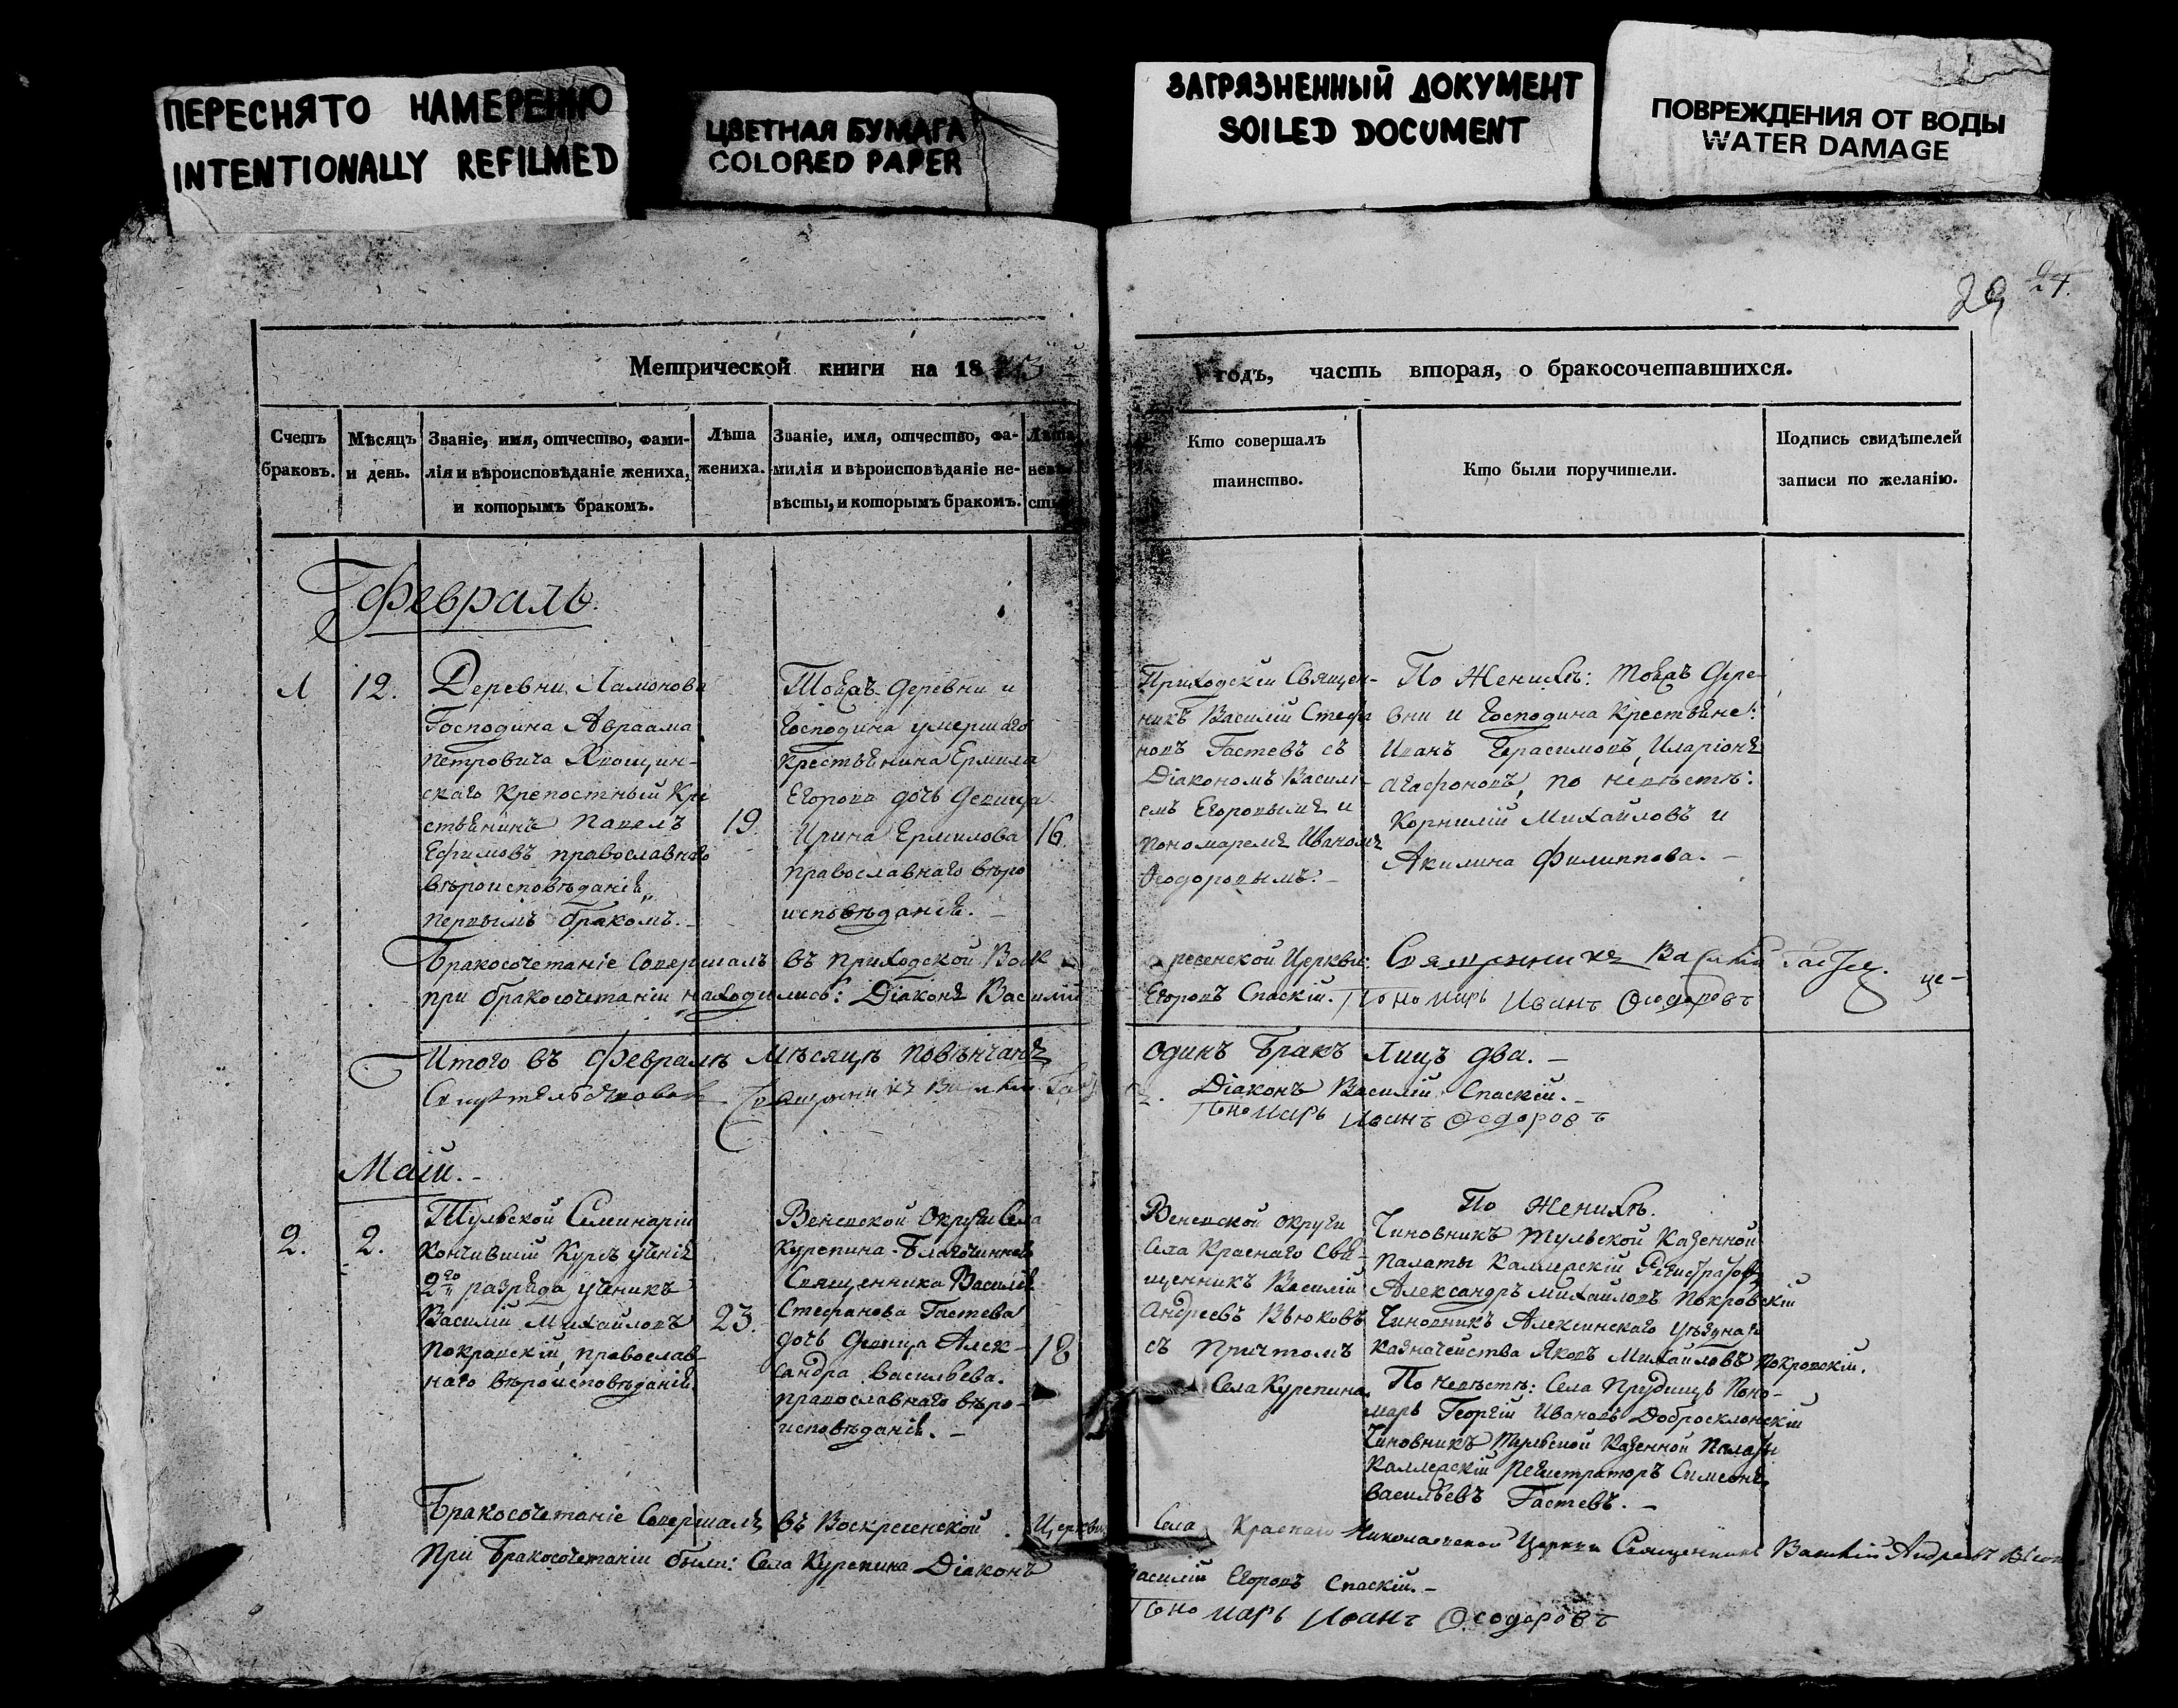 ПЕРЕСНЯТО НАМЕРЕННО
INTENTIONALLY REFILMED
ЦВЕТНАЯ БУМАГА
COLORED PAPER
ЗАГРЯЗНЕННЫЙ ДОКУМЕНТ
SOILED DOCUMENT
ПОВРЕЖДЕНИЯ ОТ ВОДЫ
WATER DAMAGE
Метрической книги на 18
Счетъ
браковъ.
Мѣсяцъ
и день.
Званіе, имя, отчество, фами-
лія и вѣроисповѣданіе жениха,
и которымъ бракомъ.
Лѣта
жениха.
Званіе, имя, отчество, фа-
милія и вѣроисповѣданіе не-
вѣсты, и которымъ бракомъ.
Лѣта
невѣ-
сты
Февраль.
1
12.
Деревни Ламонова
Господина Авраама
Петровича Хвощин-
скаго крепостный кре
стьянинъ Павелъ
Ефимовъ православнаго
вѣроисповѣданія,
первымъ бракомъ.
19.
Тойжъ деревни и
господина умершаго
крестьянина Ермила
Егорова дочь девица
Ирина Ермилова
православнаго вѣро
исповѣданія.
16.
Бракосочетаніе совершалъ въ приходской Воск
при бракосочетаніи находились: Діаконъ Василій
Итого въ Февралѣ мѣсяцѣ повѣнчанъ
Священникъ Василій
Маій.
2.
2.
Тульской Семинаріи
кончившій курсъ ученія
2го разряда ученикъ
Василій Михайловъ
Покровскій, православ-
наго вѣроисповѣданія.
23.
Веневской округи села
Курепина Благочиннаго
Священника Василія
Стефанова Гастева
дочь девица Алек-
сандра Васильева.
православнаго вѣро-
исповѣданія.
18
Бракосочетаніе совершалъ въ Воскресенской Церкви
При бракосочетаніи были: Села Курепина Діаконъ
29
24.
годъ, часть вторая, о бракосочетавшихся.
Кто совершалъ
таинство.
Кто были поручители.
Подпись свидѣтелей
записи по желанію.
Приходскій Священ-
никъ Василій Стефа
новъ Гастевъ съ
Діакономъ Василі-
емъ Егоровымъ и
пономаремъ Иваномъ
Феодоровымъ.
По Женихѣ: тойжъ дере-
вни и господина крестьяне:
Иванъ Герасимовъ, Иларіонъ
Агафоновъ, по невѣстѣ:
Корнилій Михайловъ и
Акилина Филиппова.
ресенской Церкви: Священникъ Василій Гастев.
Егоровъ Спаскій. Пономарь Иванъ Феодоровъ
одинъ бракъ лицъ два.
Діаконъ Василій Спаскій.
Пономарь Иванъ Феодоровъ
Веневской округи
Села Краснаго Свя-
щенникъ Василій
Андреевъ Вьюковъ
съ причтомъ
Села Курепина.
По Женихѣ.
Чиновникъ Тульской Казенной
Палаты Коллежскій Регистраторъ
Александръ Михайловъ Покровскій
Чиновникъ Алексинскаго уѣзднаго
казначейства Яковъ Михайловъ Покровскій.
По невѣстѣ: Села Прудищъ Поно-
марь Георгій Ивановъ Доброклонскій
Чиновникъ Тульской Казенной Палаты
Коллежскій Регистраторъ Симеонъ
Васильевъ Гастевъ.
Села Краснаго Николаевской Церкви Священникъ Василій Андреевъ
Василій Егоровъ Спаскій.
Пономарь Иванъ Феодоровъ